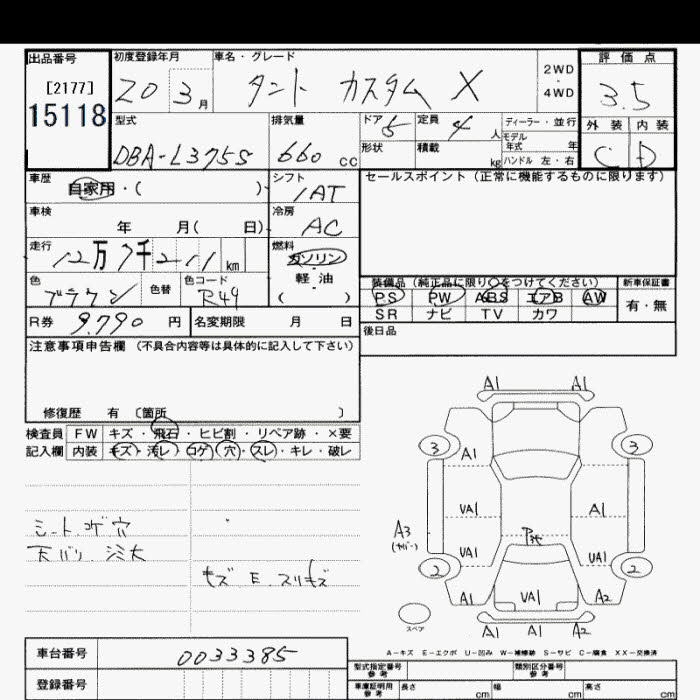 出品番号 初度登録年月 車名・グレード 評価点
[2177] 20 3月 タント カスタム X 2WD 4WD 3.5
15118
型式 排気量 ドア 5 定員 4人 ディーラー・並行 外装 内装
DBA-L375S 660cc 形状 積載 kg モデル年式 年 C D
ハンドル 左・右
車歴 自家用・( ) シフト IAT セールスポイント (正常に機能するものに限ります)
車検 年 月( 日) 冷房 AC
走行 12万7千211km 燃料 ガソリン
軽油
( )
色 ブラウン 色替 色コード R49 装備品 (純正品に限り○をつけてください) 新車保証書
PS PW ABS エアB AW 有・無
SR ナビ TV カワ
R券 9,790円 名変期限 月 日 後日品
注意事項申告欄 (不具合内容等は具体的に記入して下さい)
修復歴 有 〔箇所 〕
検査員 FW キズ・飛石・ヒビ割・リペア跡・×要
記入欄 内装 キズ・汚レ・コゲ・穴・スレ・キレ・破レ
シート コゲ穴
天バリ 汚大
キズ E. スリキズ
A1 A1
3 A1 3
VA1 A1
A3 P3t
VA1 UA1
2 2
A1 VA1 A2
スペア A1 A1 A2
A-キズ E-エクボ U-凹み W-補修跡 S-サビ C-腐食 XX-交換済
車台番号 0033385 型式指定番号 参考 類別区分番号 参考
登録番号 車庫証明用 参考 長さ cm 幅 cm 高さ cm